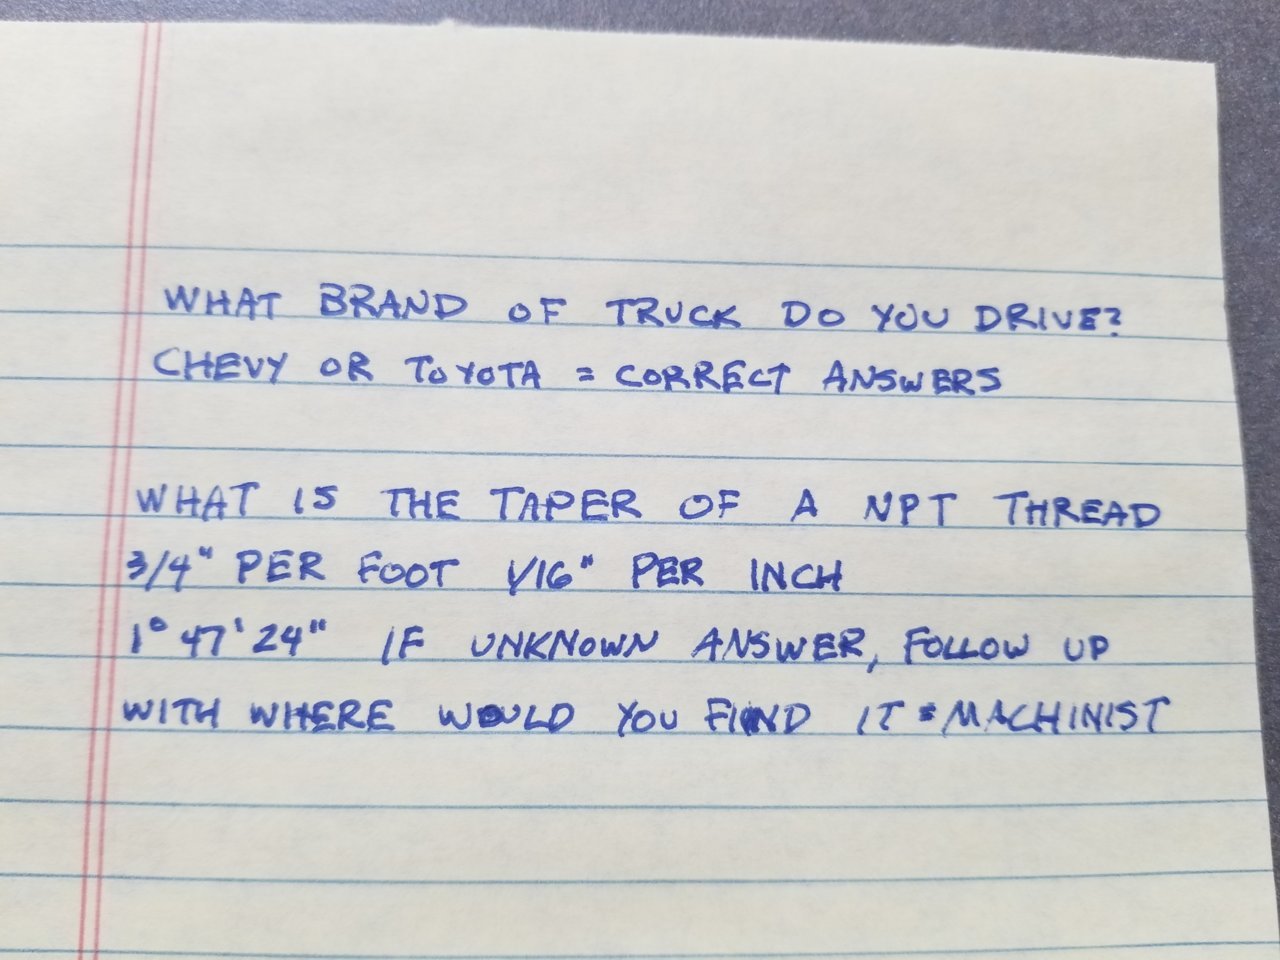 WHAT BRAND OF TRUCK DO YOU DRIVE?
CHEVY OR TOYOTA = CORRECT ANSWERS
WHAT IS THE TAPER OF A NPT THREAD
3/4" PER FOOT 1/16" PER INCH
1° 47' 24" IF UNKNOWN ANSWER, FOLLOW UP
WITH WHERE WOULD YOU FIND IT = MACHINIST